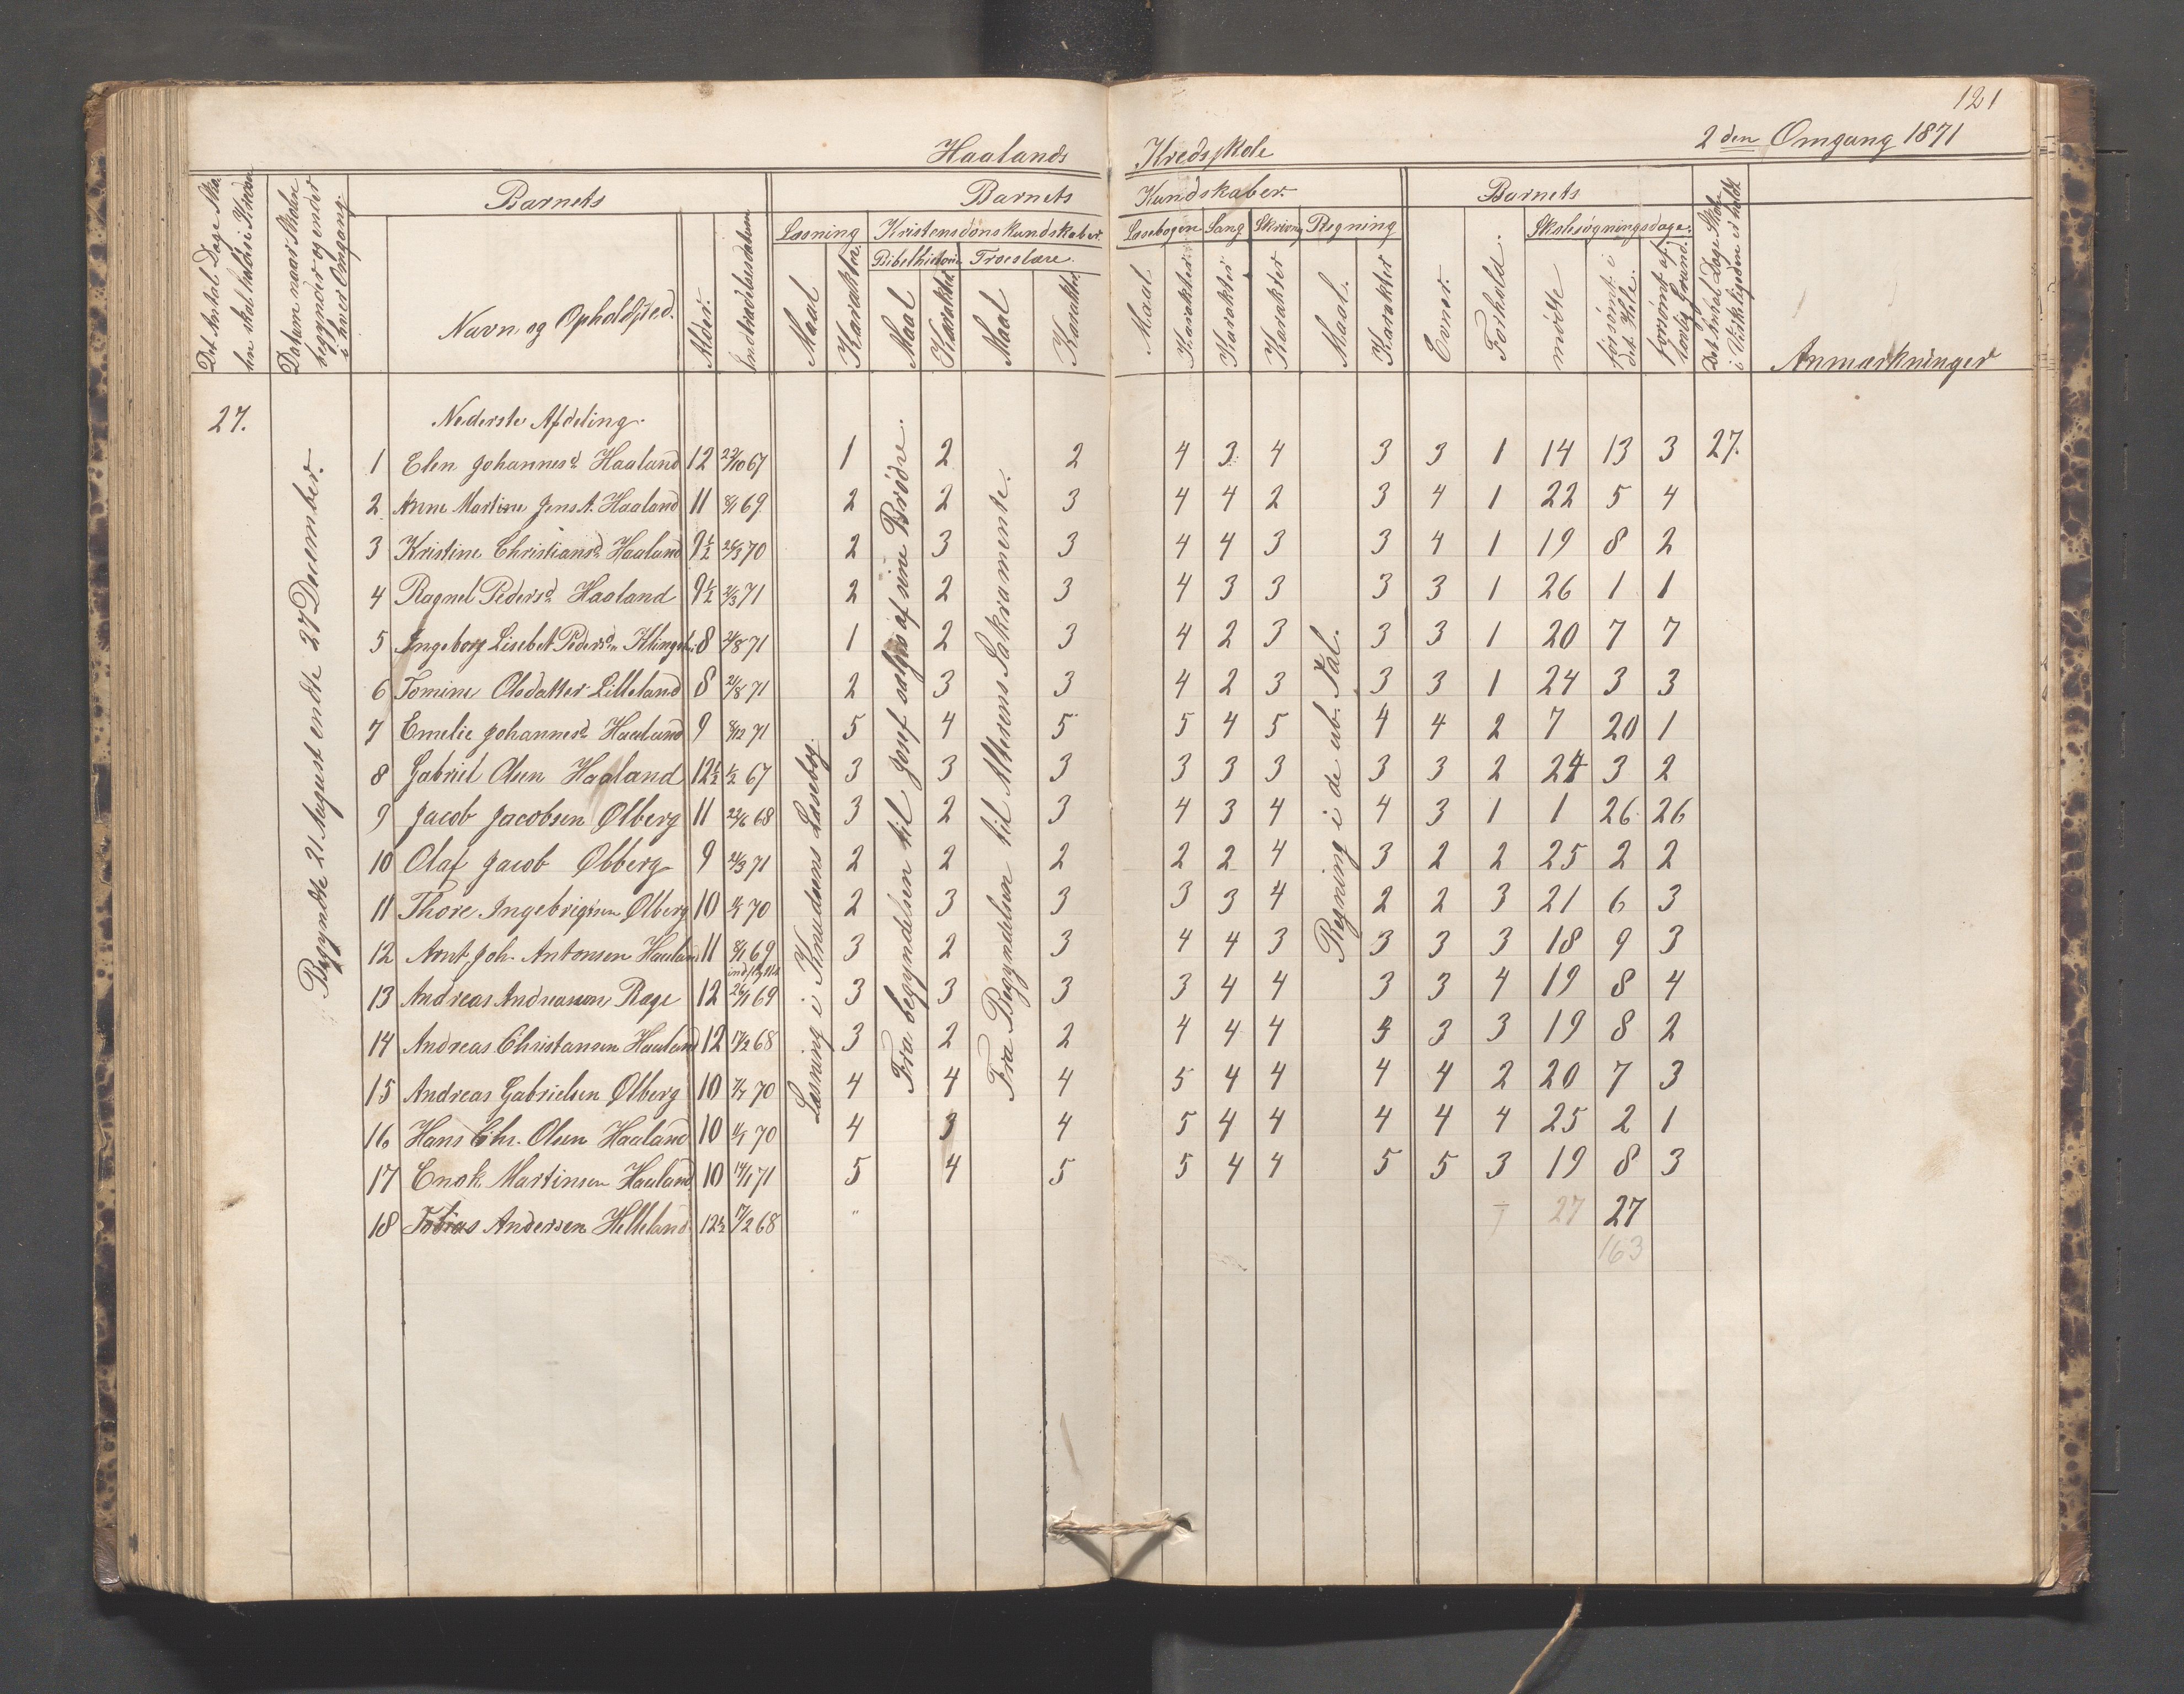 121
Haalands Kredsskole 2den Omgang 1871
Det Antal Dage Skolen skal holdes i Kredsen
Datum naar Skolen begynder og ender i hver Omgang.
Barnets
Navn og Opholdsted.
Alder.
Indtrædelsesdatum
Barnets Kundskaber
Læsning
Maal
Karakter.
Kristendomskundskaber.
Bibelhistorie
Maal
Karakter.
Troeslære.
Maal
Karakter
Læsebogen
Maal
Karakter
Sang
Karakter
Skrivng
Karakter
Regning
Maal.
Karakter
Barnets
Evner.
Forhold.
Skolesøgningsdage.
mødte
forsømt i det Hele.
forsømt af lovlig Grund.
Det Antal Dage Skole i Virkeligheden er holdt
Anmærkninger
27.
Begyndte 21 August endte 27 December.
Nederste Afdeling.
Læsning i Knudsens Læsebog.
Fra begyndelsen til Josef sælges af sine Brødre.
Fra Begyndelsen til Alterens Sakramente.
Regning i de ub. Tal.
1 Elen Johannesd. Haaland 12 22/10 67 1 2 2 4 3 4 3 3 1 14 13 3 27.
2 Anne Martine Jens A. Haaland 11 8/1 69 2 2 3 4 4 2 3 4 1 22 5 4
3 Kristine Christiansd. Haaland 9½ 28/3 70 2 3 3 4 4 3 3 4 1 19 8 2
4 Ragnel Pedersd. Haaland 9½ 2/3 71 2 2 3 4 3 3 3 3 1 26 1 1
5 Ingeborg Lisebet Pedersd. 8 21/8 71 1 2 3 4 2 3 3 3 1 20 7 7
6 Tomine Olsdatter Lilleland 8 21/8 71 2 3 3 4 2 3 3 3 1 24 3 3
7 Emelie Johannesd. Haaland 9 8/12 71 5 4 5 5 4 5 4 4 2 7 20 1
8 Gabriel Olsen Haaland 12½ 1/2 67 3 3 3 3 3 3 3 3 2 24 3 2
9 Jacob Jacobsen Ølberg 11 22/6 68 3 2 3 4 3 4 4 3 1 1 26 26
10 Olaf Jacob Ølberg 9 21/3 71 2 2 2 2 2 4 3 2 2 25 2 2
11 Thore Ingebrigtsen Ølberg 10 70 2 3 3 3 3 4 2 2 3 21 6 3
12 Arnt Joh. Antonsen Haaland 11 8/1 69 3 2 3 4 4 3 3 3 3 18 9 3
13 Andreas Andreassen Rege 12 26/1 69 3 3 3 3 4 4 3 3 4 19 8 4
14 Andreas Christiansen Haaland 12 17/2 68 3 2 2 4 4 4 3 3 3 19 8 2
15 Andreas Gabrielsen Ølberg 10 70 4 4 4 5 4 4 4 4 2 20 7 3
16 Hans Chr. Olsen Haaland 10 70 4 3 4 5 4 4 4 4 4 25 2 1
17 Enok Martinsen Haaland 10 19/1 71 5 4 5 5 4 4 5 5 3 19 8 3
18 Tobias Andersen Helleland 12½ 17/2 68 " 27 27
163